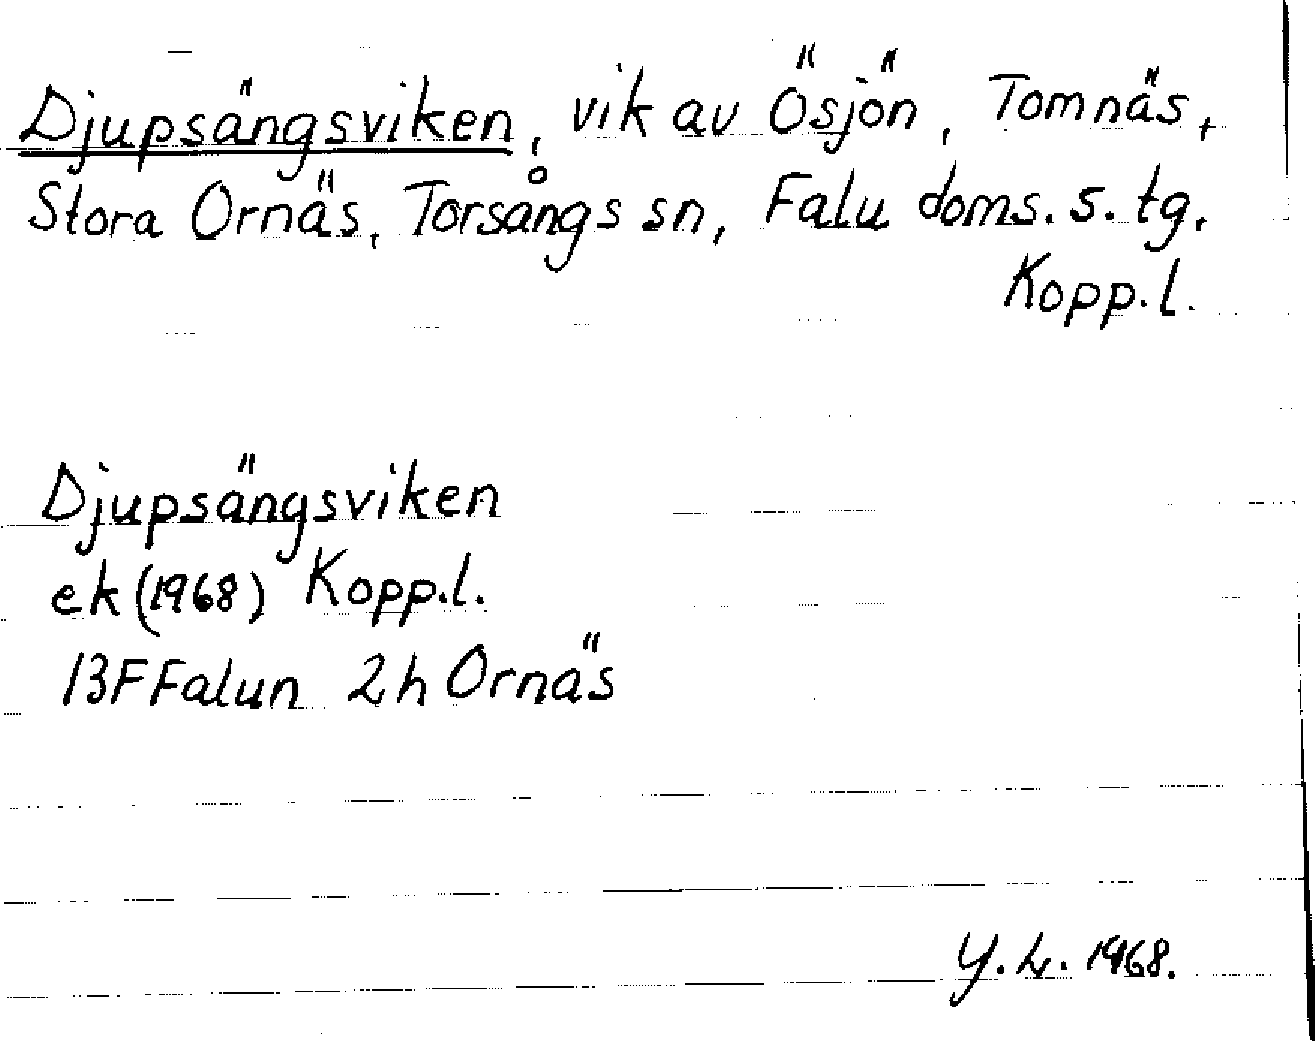 Djupsängsviken, vik av Ösjön, Tomnäs,
Stora Ornäs, Torsångs sn, Falu doms. s. tg.
Kopp.l.
Djupsängsviken
ek (1968) Kopp.l.
13F Falun 2h Ornäs
Y.L. 1968.